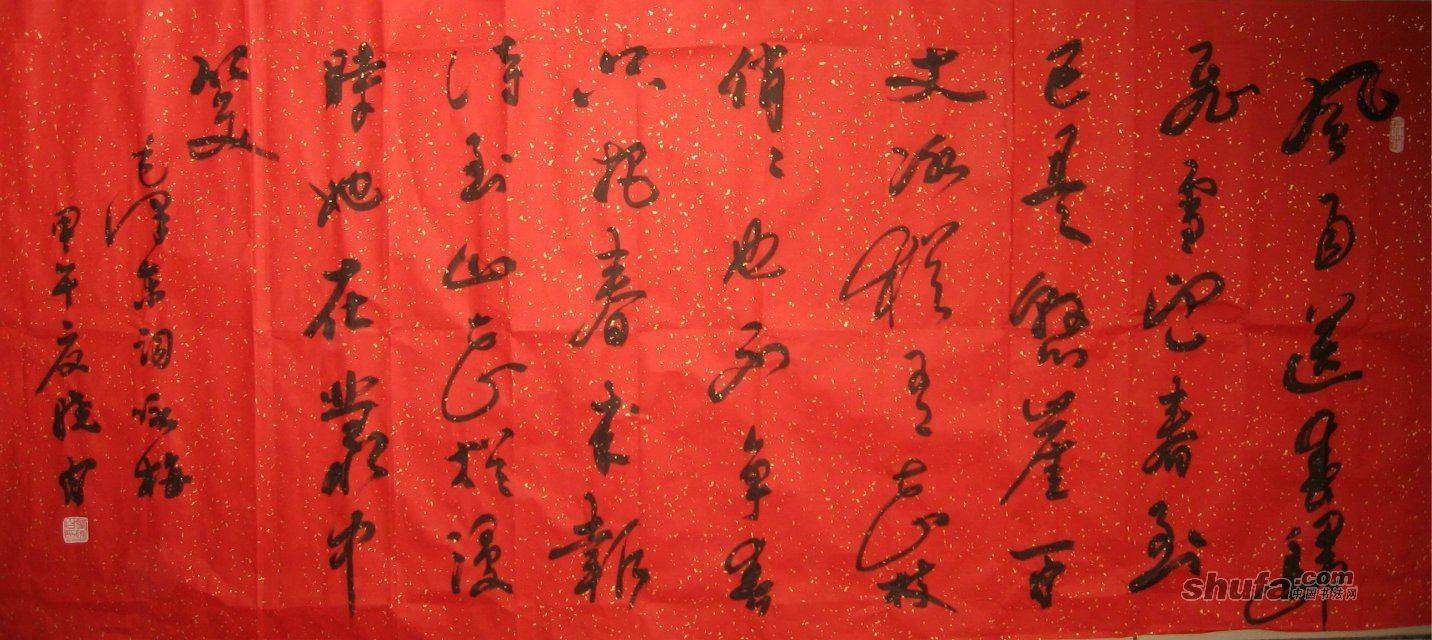 風雨送春歸
飛雪迎春到
已是懸崖百
丈冰猶有花枝
俏〻也不争春
只把春来報
待到山花烂漫
時她在叢中
笑
毛澤东词咏梅
甲午夏晓
shufa.com
中国书法网